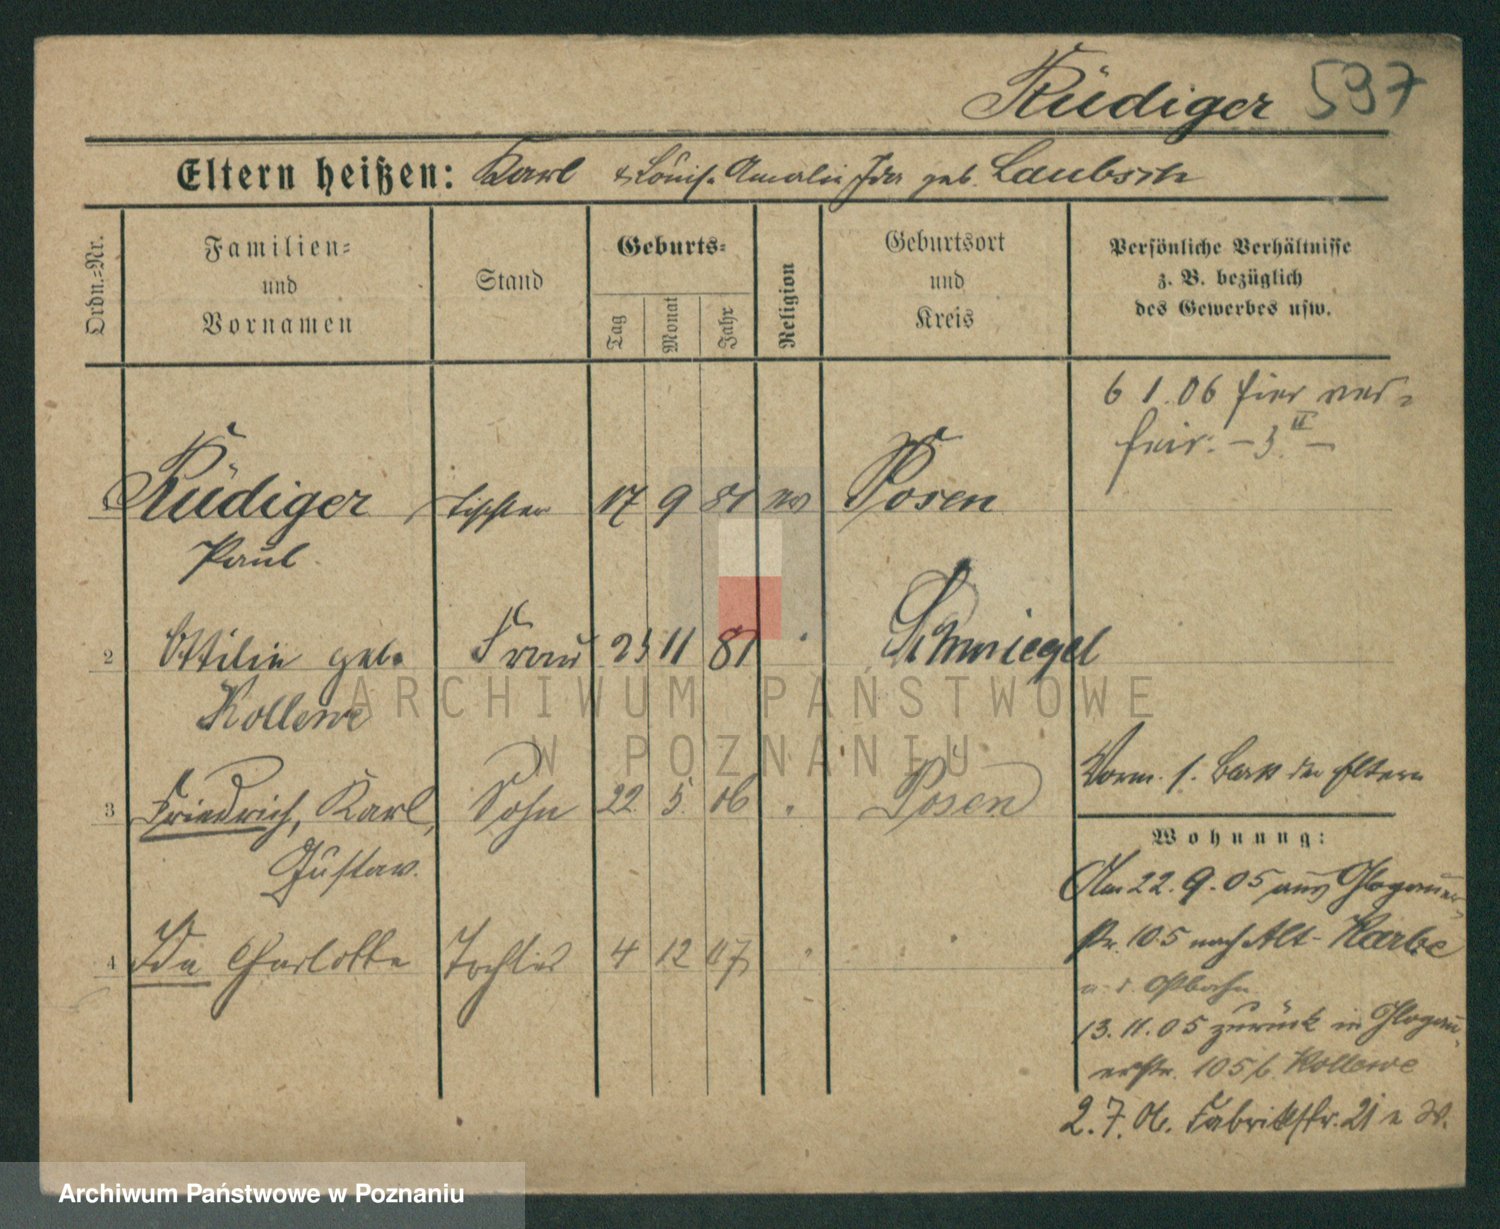 Rüdiger 597
Eltern heißen: Karl & Louise Amalie Ida geb. Laubsch
Ordn.-Nr.
Familien-
und
Vornamen
Stand
Geburts-
Tag
Monat
Jahr
Religion
Geburtsort
und
Kreis
Persönliche Verhältnisse
z. B. bezüglich
des Gewerbes usw.
6 1.06 hier ver-
heir. - 3.II -
Rüdiger Tischler 17 9 81 ev Posen
Paul
2 Ottilie geb. Frau 23 11 81 " Schmiegel
Kollewe
3 Friedrich, Karl, Sohn 22 5 06 " Posen
Gustav.
4 Ida Charlotte Tochter 4 12 07 " "
Vorm. s. der Eltern
Wohnung:
Am 22.9.05 aus Glogauer-
str. 105 nach Alt-Karbe
a. d. Ostbahn
13.11.05 zurück in Glogau-
erstr. 105 b. Kollewe
2.7.06. Fabrikstr. 21
ARCHIWUM PAŃSTWOWE
W POZNANIU
Archiwum Państwowe w Poznaniu